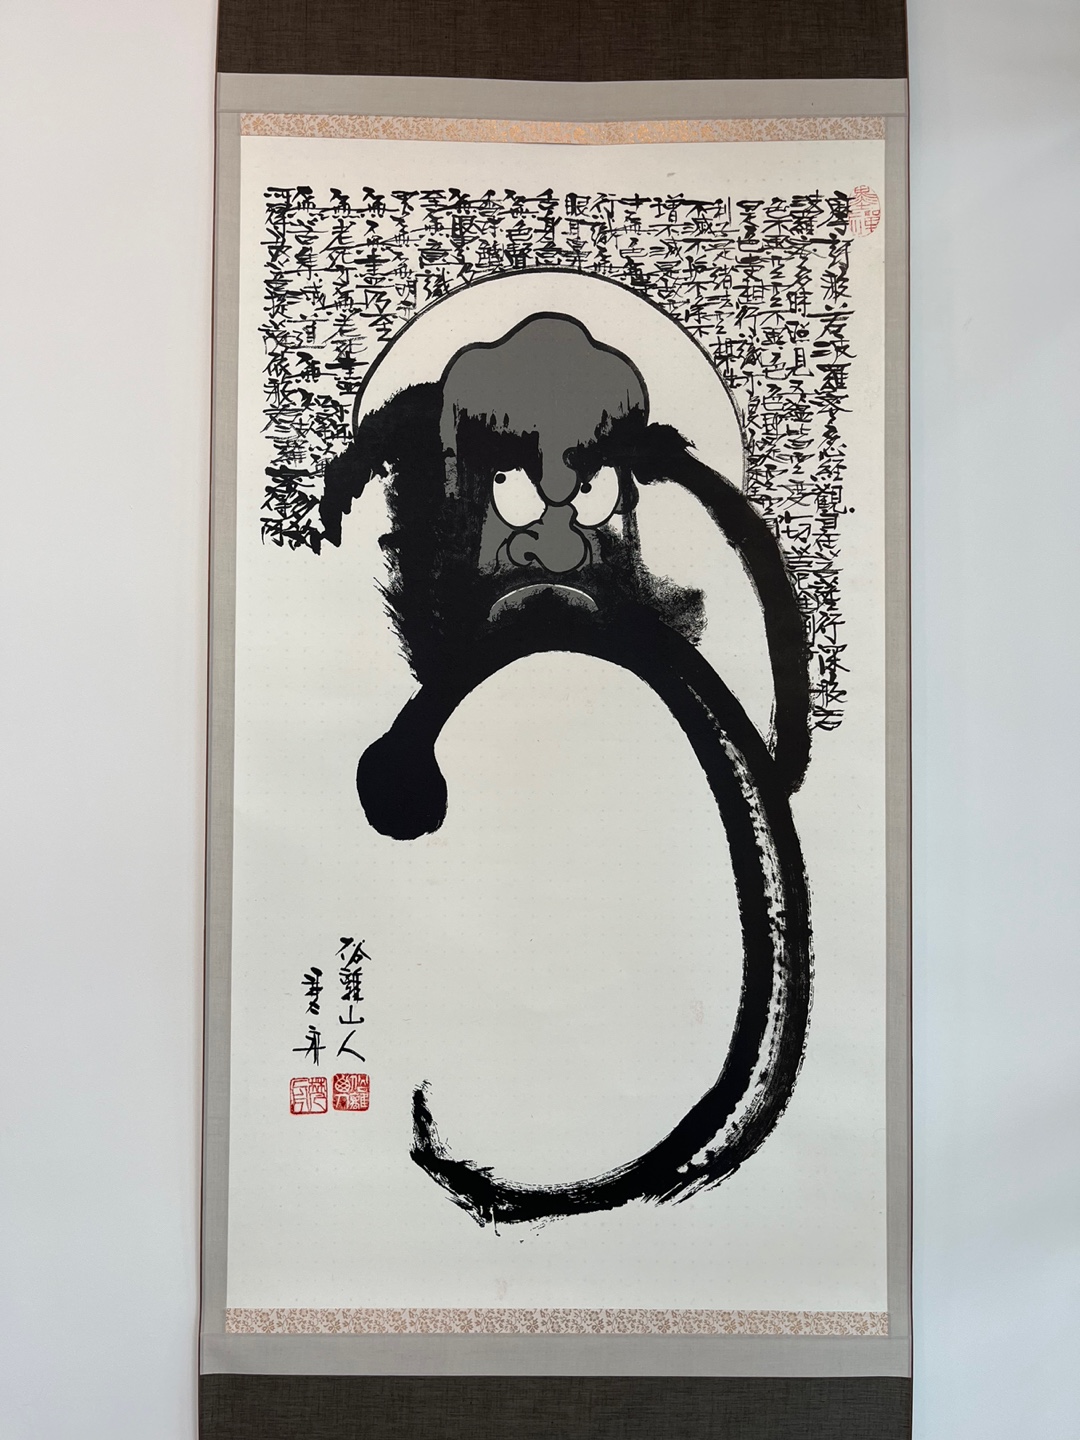 摩訶般若波羅蜜多心経觀自在菩薩行深般若
波羅蜜多時照見五蘊皆空度一切苦厄舎利子
色不異空空不異色色即是空空
是色受想行識亦復如是舎
利子是諸法空相不生
不滅不垢不浄不
増不減是故空
中無色無
行識無
眼耳鼻
舌身意
無色聲
香味觸
無眼界乃
至無意識
界無無明亦
無無明盡乃至
無老死亦無老死盡
無苦集滅道無智亦無
菩提薩依般若波羅蜜多故
墨禅
俗離山人